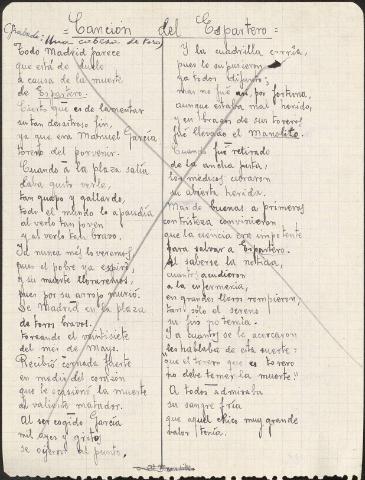 = Canción del Espartero =
Grabado: Una cabeza de toro
Todo Madrid parece
que está de duelo
a causa de la muerte
de Espartero.
Cierto que es de lamentar
su tan desastroso fin,
ya que era Manuel García
torero del porvenir.
Cuando á la plaza salía
daba gusto verle,
tan guapo y gallardo,
todo el mundo le aplaudía
al verlo tan joven
y al verlo tan bravo.
Ya nunca más lo veremos
pues el pobre ya expiró,
y su muerte lloraremos
pues por su arrojo murió.
De Madrid en la plaza
de toros bravos.
Toreando el veintisiete
del mes de Mayo.
Recibió cornada fuerte
en medio del corazón
que le ocasionó la muerte
al valiente matador.
Al ser cogido García
mil ayes y gritos
se oyeron al punto.
Y la cuadrilla corría,
pues lo supusieron
ya todos difunto;
mas no fué así, por fortuna,
aunque estaba mal herido,
y en brazos de sus toreros
fué llevado el Manolito.
Cuando fué retirado
de la ancha pista,
los médicos curaron
su abierta herida.
Mas de buenas a primeros
con tristeza convinieron
que la ciencia era impotente
para salvar a Espartero.
Al saberse la noticia,
cuantos acudieron
a la enfermería,
en grandes lloros rompieron,
tan sólo el sereno
su fin ponía.
Y a cuantos se le acercaron
les hablaba de esta suerte:
"que el torero que es torero
no debe temer la muerte"
A todos admiraba
su sangre fría
que aquel chico muy grande
valor tenía.